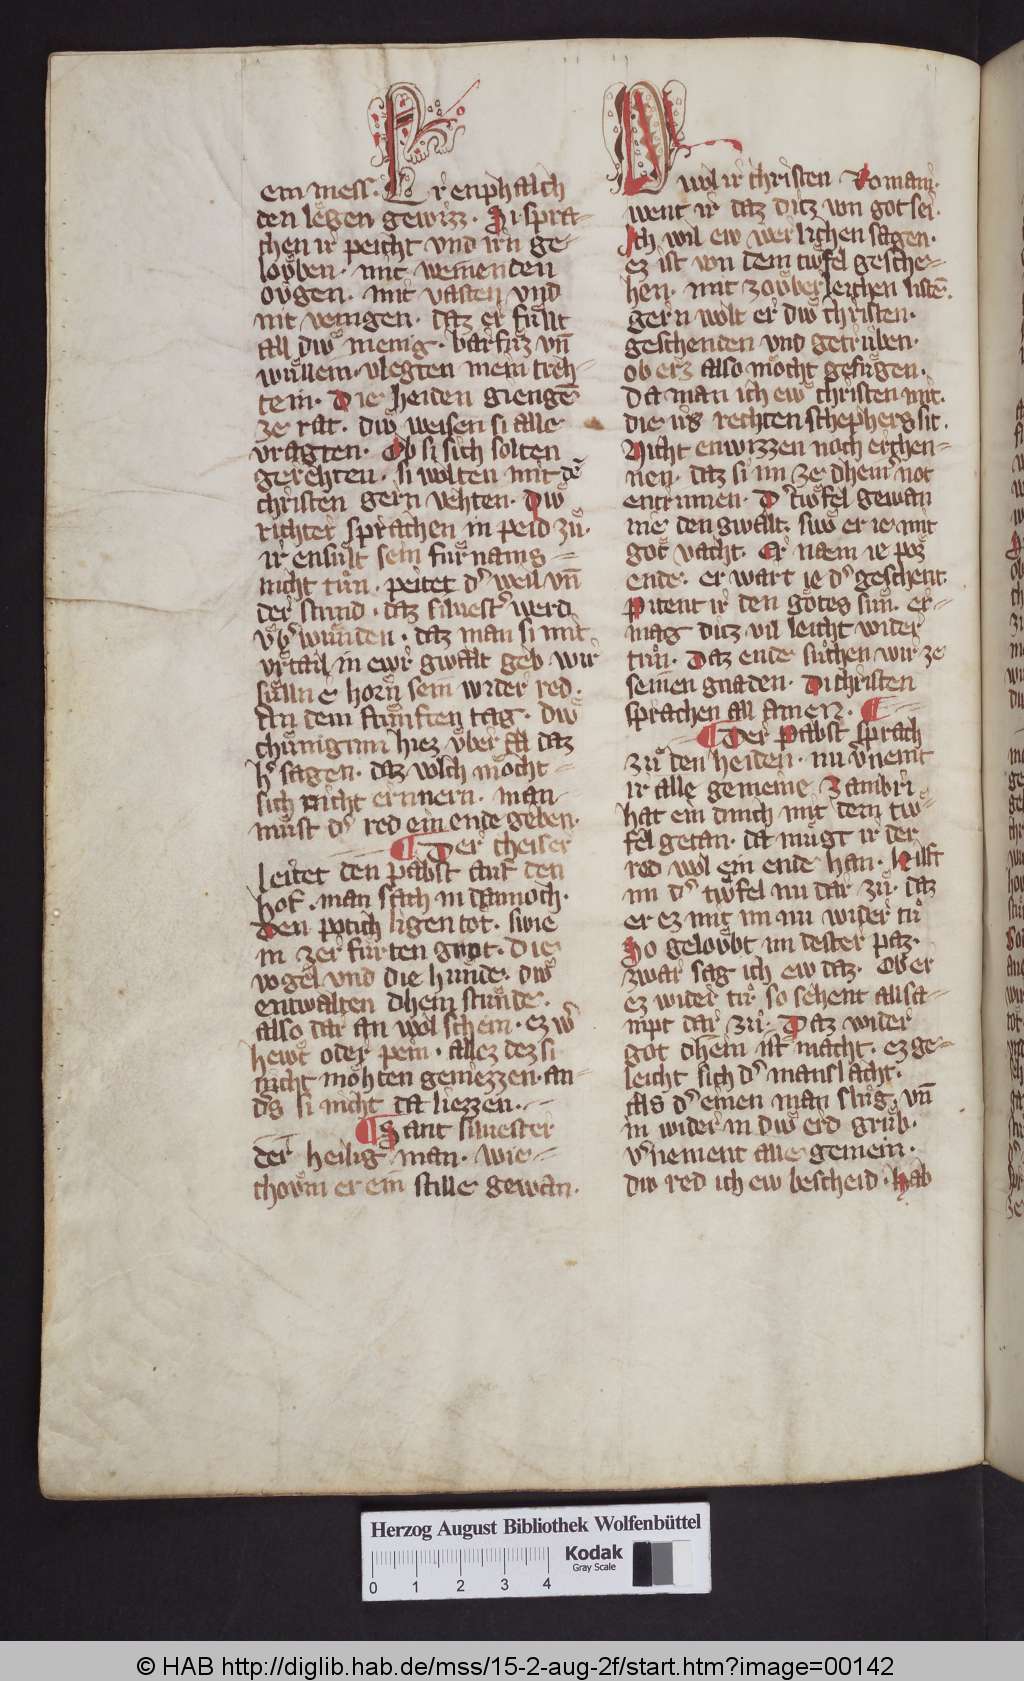 ein mess. Er enphalch
den legen gewizz. Si spra-
chen ir peicht vnd irn ge-
loͮben. mit weinenden
oͮgen. mit vasten vnd
mit venigen. daz er fuͤllt
all diw menig. barfuͤz vn̄
wuͤllein. vlegten mein treh-
tein. Die heiden giengē
ze rat. diw weisen si alle
vragten. Ob si sich solten
gerehten. si wolten mit dē
christen gern vehten. Diw
richter sprachen in peid zuͦ.
ir ensuͤlt sein fuͤrnams
nicht tuͦn. peitet dˢ weil vn̄
der stund. daz siluestˢ werd
vbˢwunden. daz man si mit
vrtail in ewr gwalt geb wir
suͤlln e horn sein wider red.
An dem fuͤnften tag. diw
chuͤniginn hiez vber al daz
hˢ sagen. daz wolch moͤcht
sich nicht erinnern. man
muͤst dˢ red ein ende geben.
¶ Der cheiser
leitet den pabst auf den
hof. man sach in dannoch.
Den potich ligen tot. swie
in zerfuͤrten gnot. Die
vogel vnd die hunde. diw
entwalten dhein stunde.
also dar an wol schein. ez wˢ
hewt oder pein. allez dez si
nicht mohten geniezzen. an-
dˢs si nicht da liezzen.
¶ Sant siluester
der heilig man. wie
choͮm er ein stille gewan.
Nu wol ir christen Romani.
went ir daz ditz von got sei.
Ich wil ew werlichen sagen.
ez ist von dem tiwfel gesche-
hen. mit zoͮberleichen listē.
gern wolt er diw christen.
geschenden vnd getruͤben.
ob erz also moͤcht gefuͤgen.
Da man ich ew christen mit.
die irs rechten schephers sit.
Nicht enwizzen noch erchen-
nen. daz si im ze dheinˢ not
entrinnen. Dˢ tiwfel gewan
nie den gwalt. swo er ie mit
got vacht. Er naem ie poz
ende. er wart ie dˢ geschent.
Pitent ir den gotes sun. er
mag ditz vil leicht wider
tuͦn. Daz ende suͦchen wir ze
seinen gnaden. Di christen
sprachen all Amen. ¶
¶ Der Pabst sprach
zuͦ den heiden. nu vˢnemt
ir alle gemeine Zambri
hat ein dinch mit dem tiw-
fel getan. da muͤgt ir der
rod wol ein ende han. Hilft
im dˢ tiwfel nu dar zuͦ. daz
er ez mit im nu wider tuͦ
So geloͮbt im dester paz.
zwar sag ich ew daz. Ob er
ez wider tuͦ. so sehent allsa-
mpt dar zuͦ. Daz wider
got dhein ist macht. ez ge-
leicht sich dˢ manslacht.
Als dˢ einen man sluͦg. vn̄
in wider in diw erd gruͦb.
vˢnement alle gemein.
diw red ich ew bescheid. Hab
Herzog August Bibliothek Wolfenbüttel
Kodak
Gray Scale
0 1 2 3 4
© HAB http://diglib.hab.de/mss/15-2-aug-2f/start.htm?image=00142